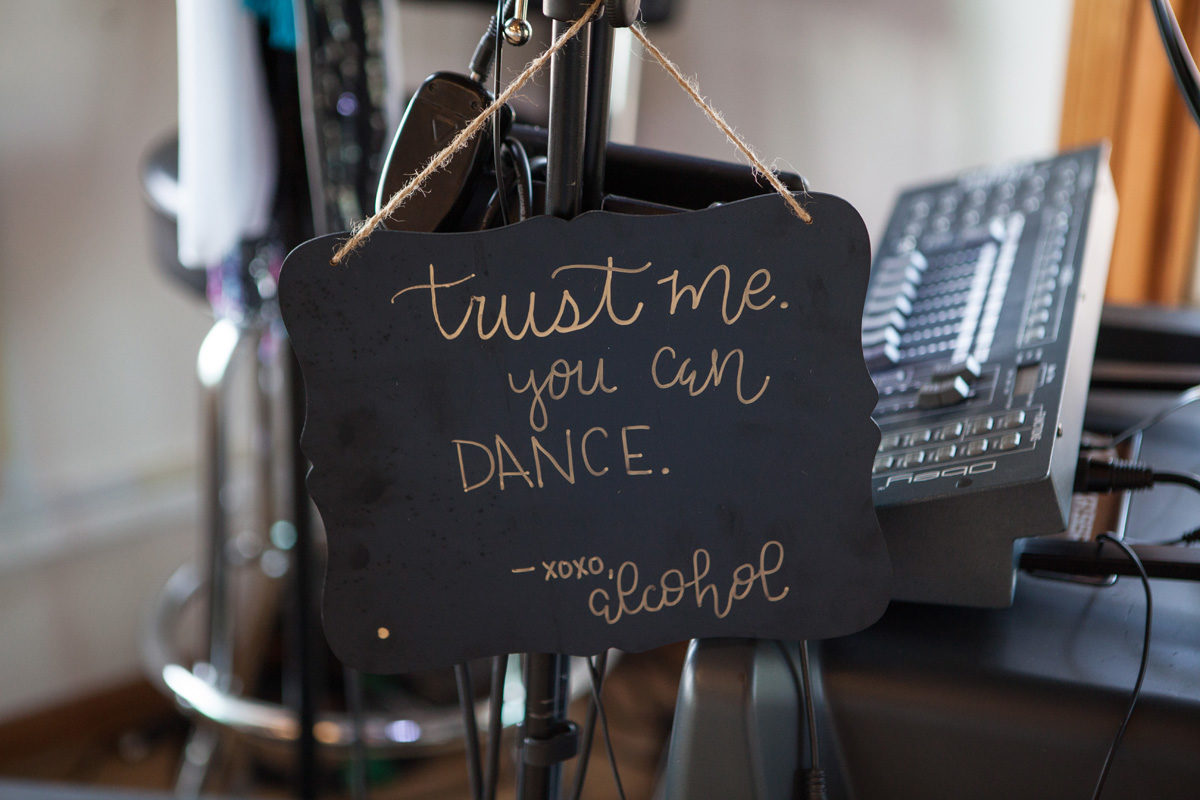 trust me.
you can
DANCE.
- xoxo,
alcohol
obey